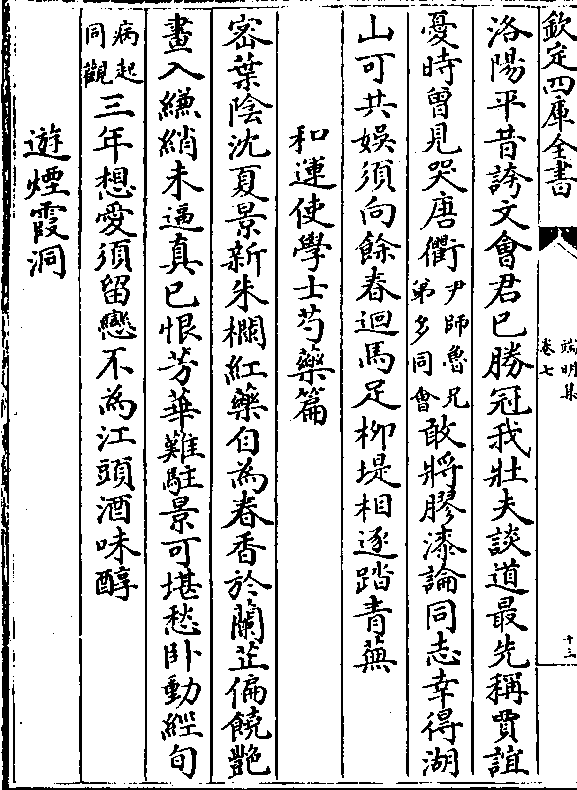 欽定四庫全書
端明集
卷七
十三
洛陽平昔誇文會君已勝冠我壯夫談道最先稱賈誼
憂時曾見哭唐衢尹師魯兄弟多同會敢將膠漆論同志幸得湖
山可共娛須向餘春迴馬足柳堤相逐踏青蕪
和運使學士芍藥篇
密葉陰沈夏景新朱欄紅藥自為春香於蘭芷偏饒艷
畫入縑綃未逼真已恨芳華難駐景可堪愁臥動經旬
病起同觀三年想愛須留戀不為江頭酒味醇
遊煙霞洞